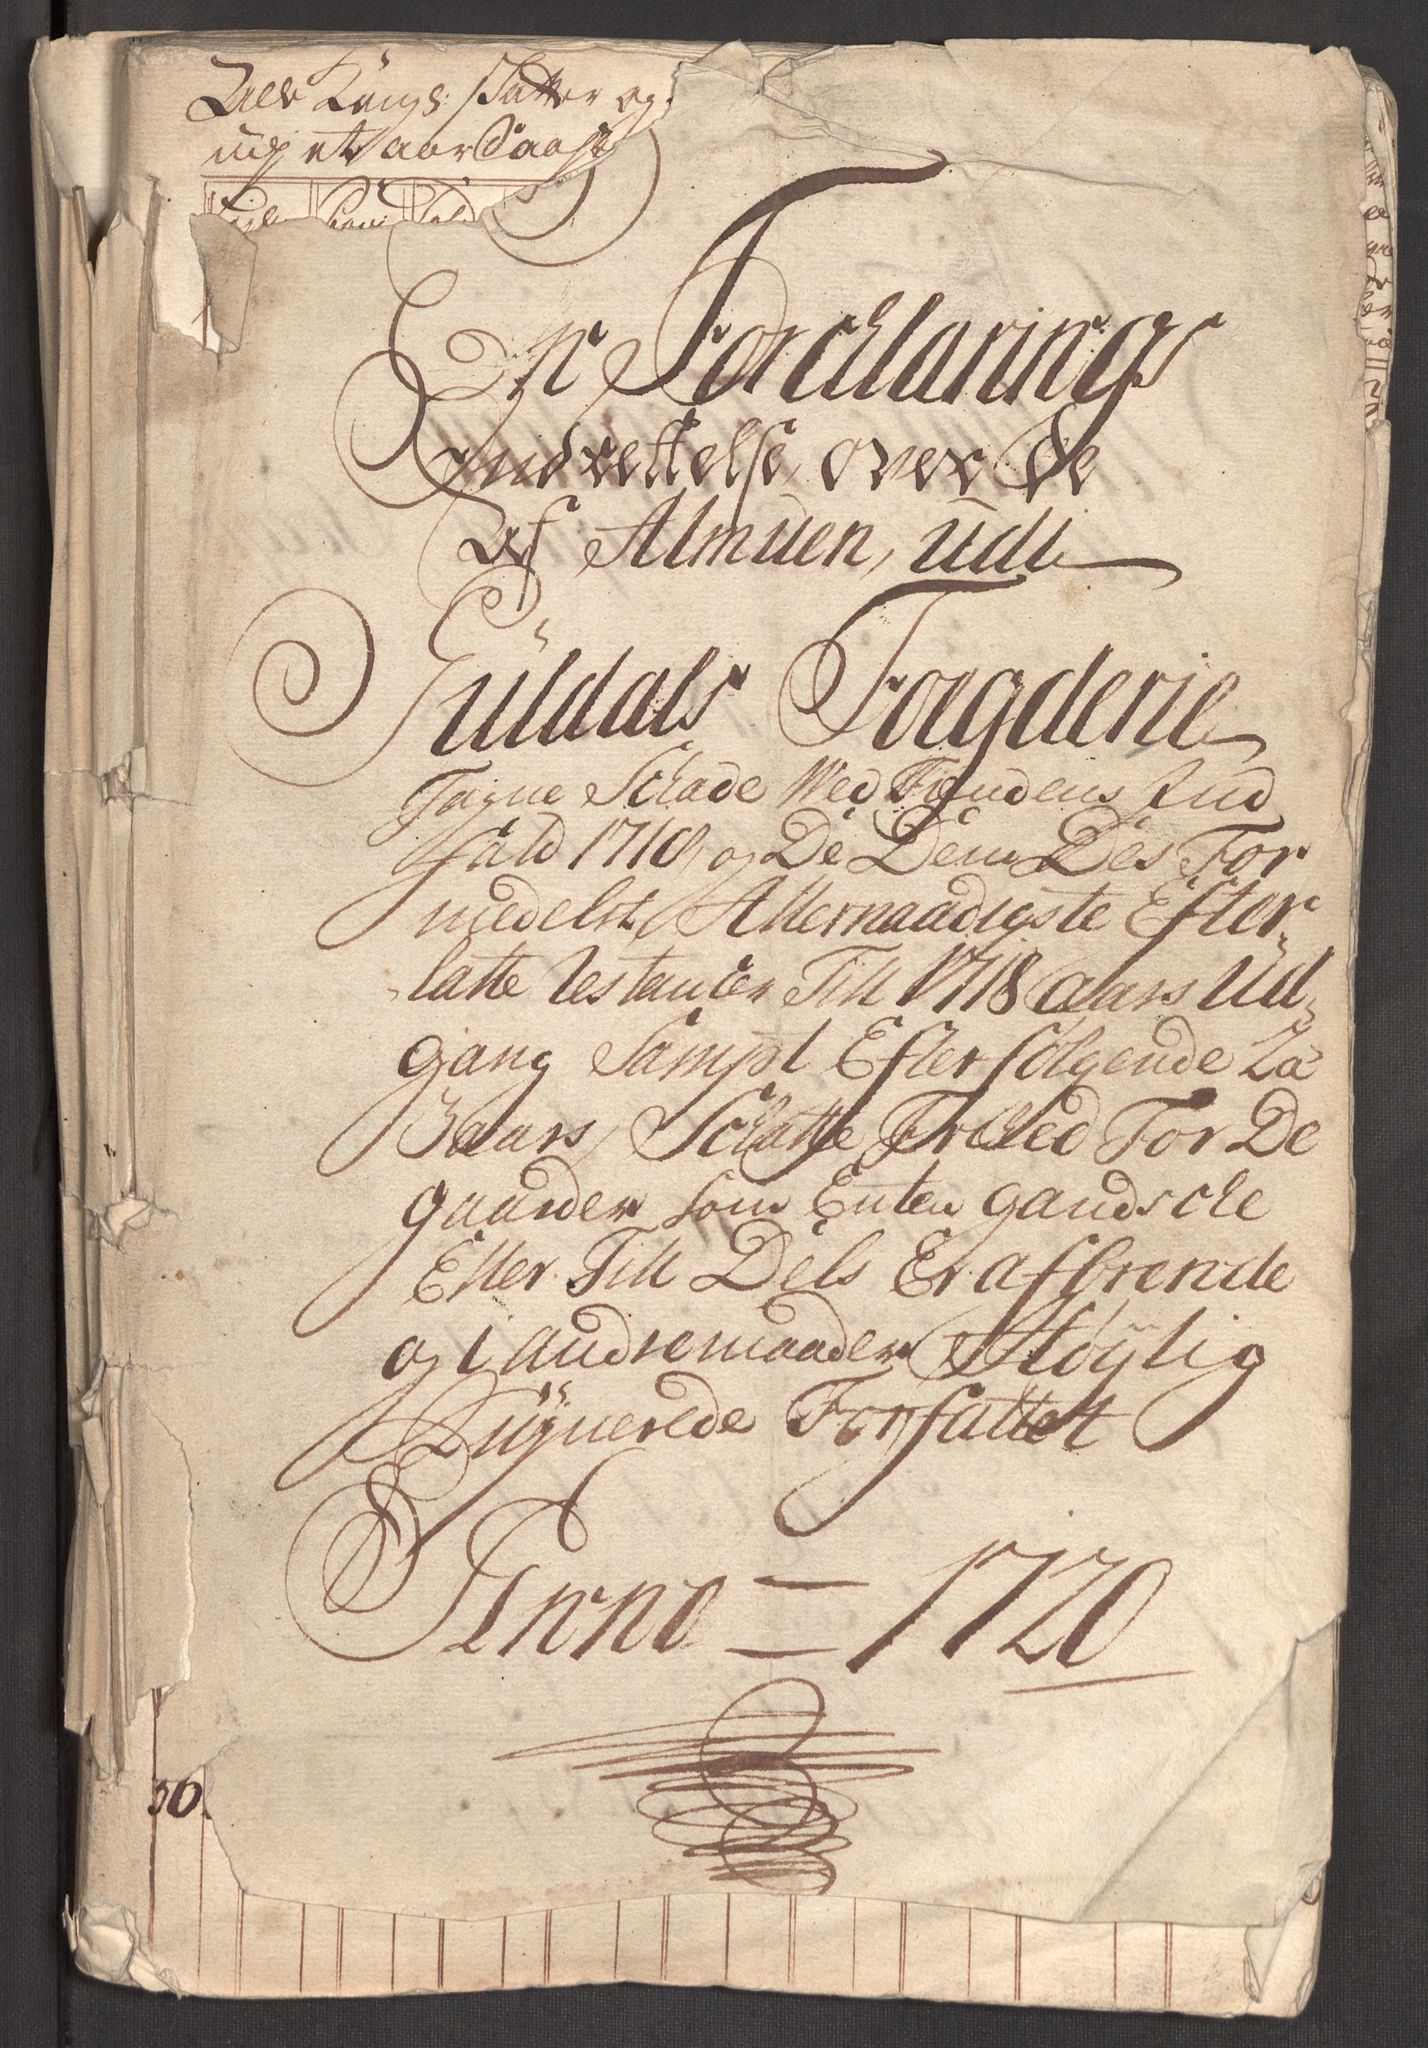 Alle Kongl: skatter og
udj et aar Saast
En Forcklarings
Indrettelse over de
af Almuen, udi
Guldals Foegderie
Tagne Schade Ved Fiendens Ind
fald 1718, og De Dem Des For
medelst, Allernaadigste Efter
latte Restantzer Till 1718 aars Ud-
gang Sampt Efterfølgende
3 aars Schatte Frihed For De
gaarder som Enten gandsche
Eller Till Dels Er afbrende
og i andre maader Høylig
Ruinerede Forfattet
Anno = 1720
30